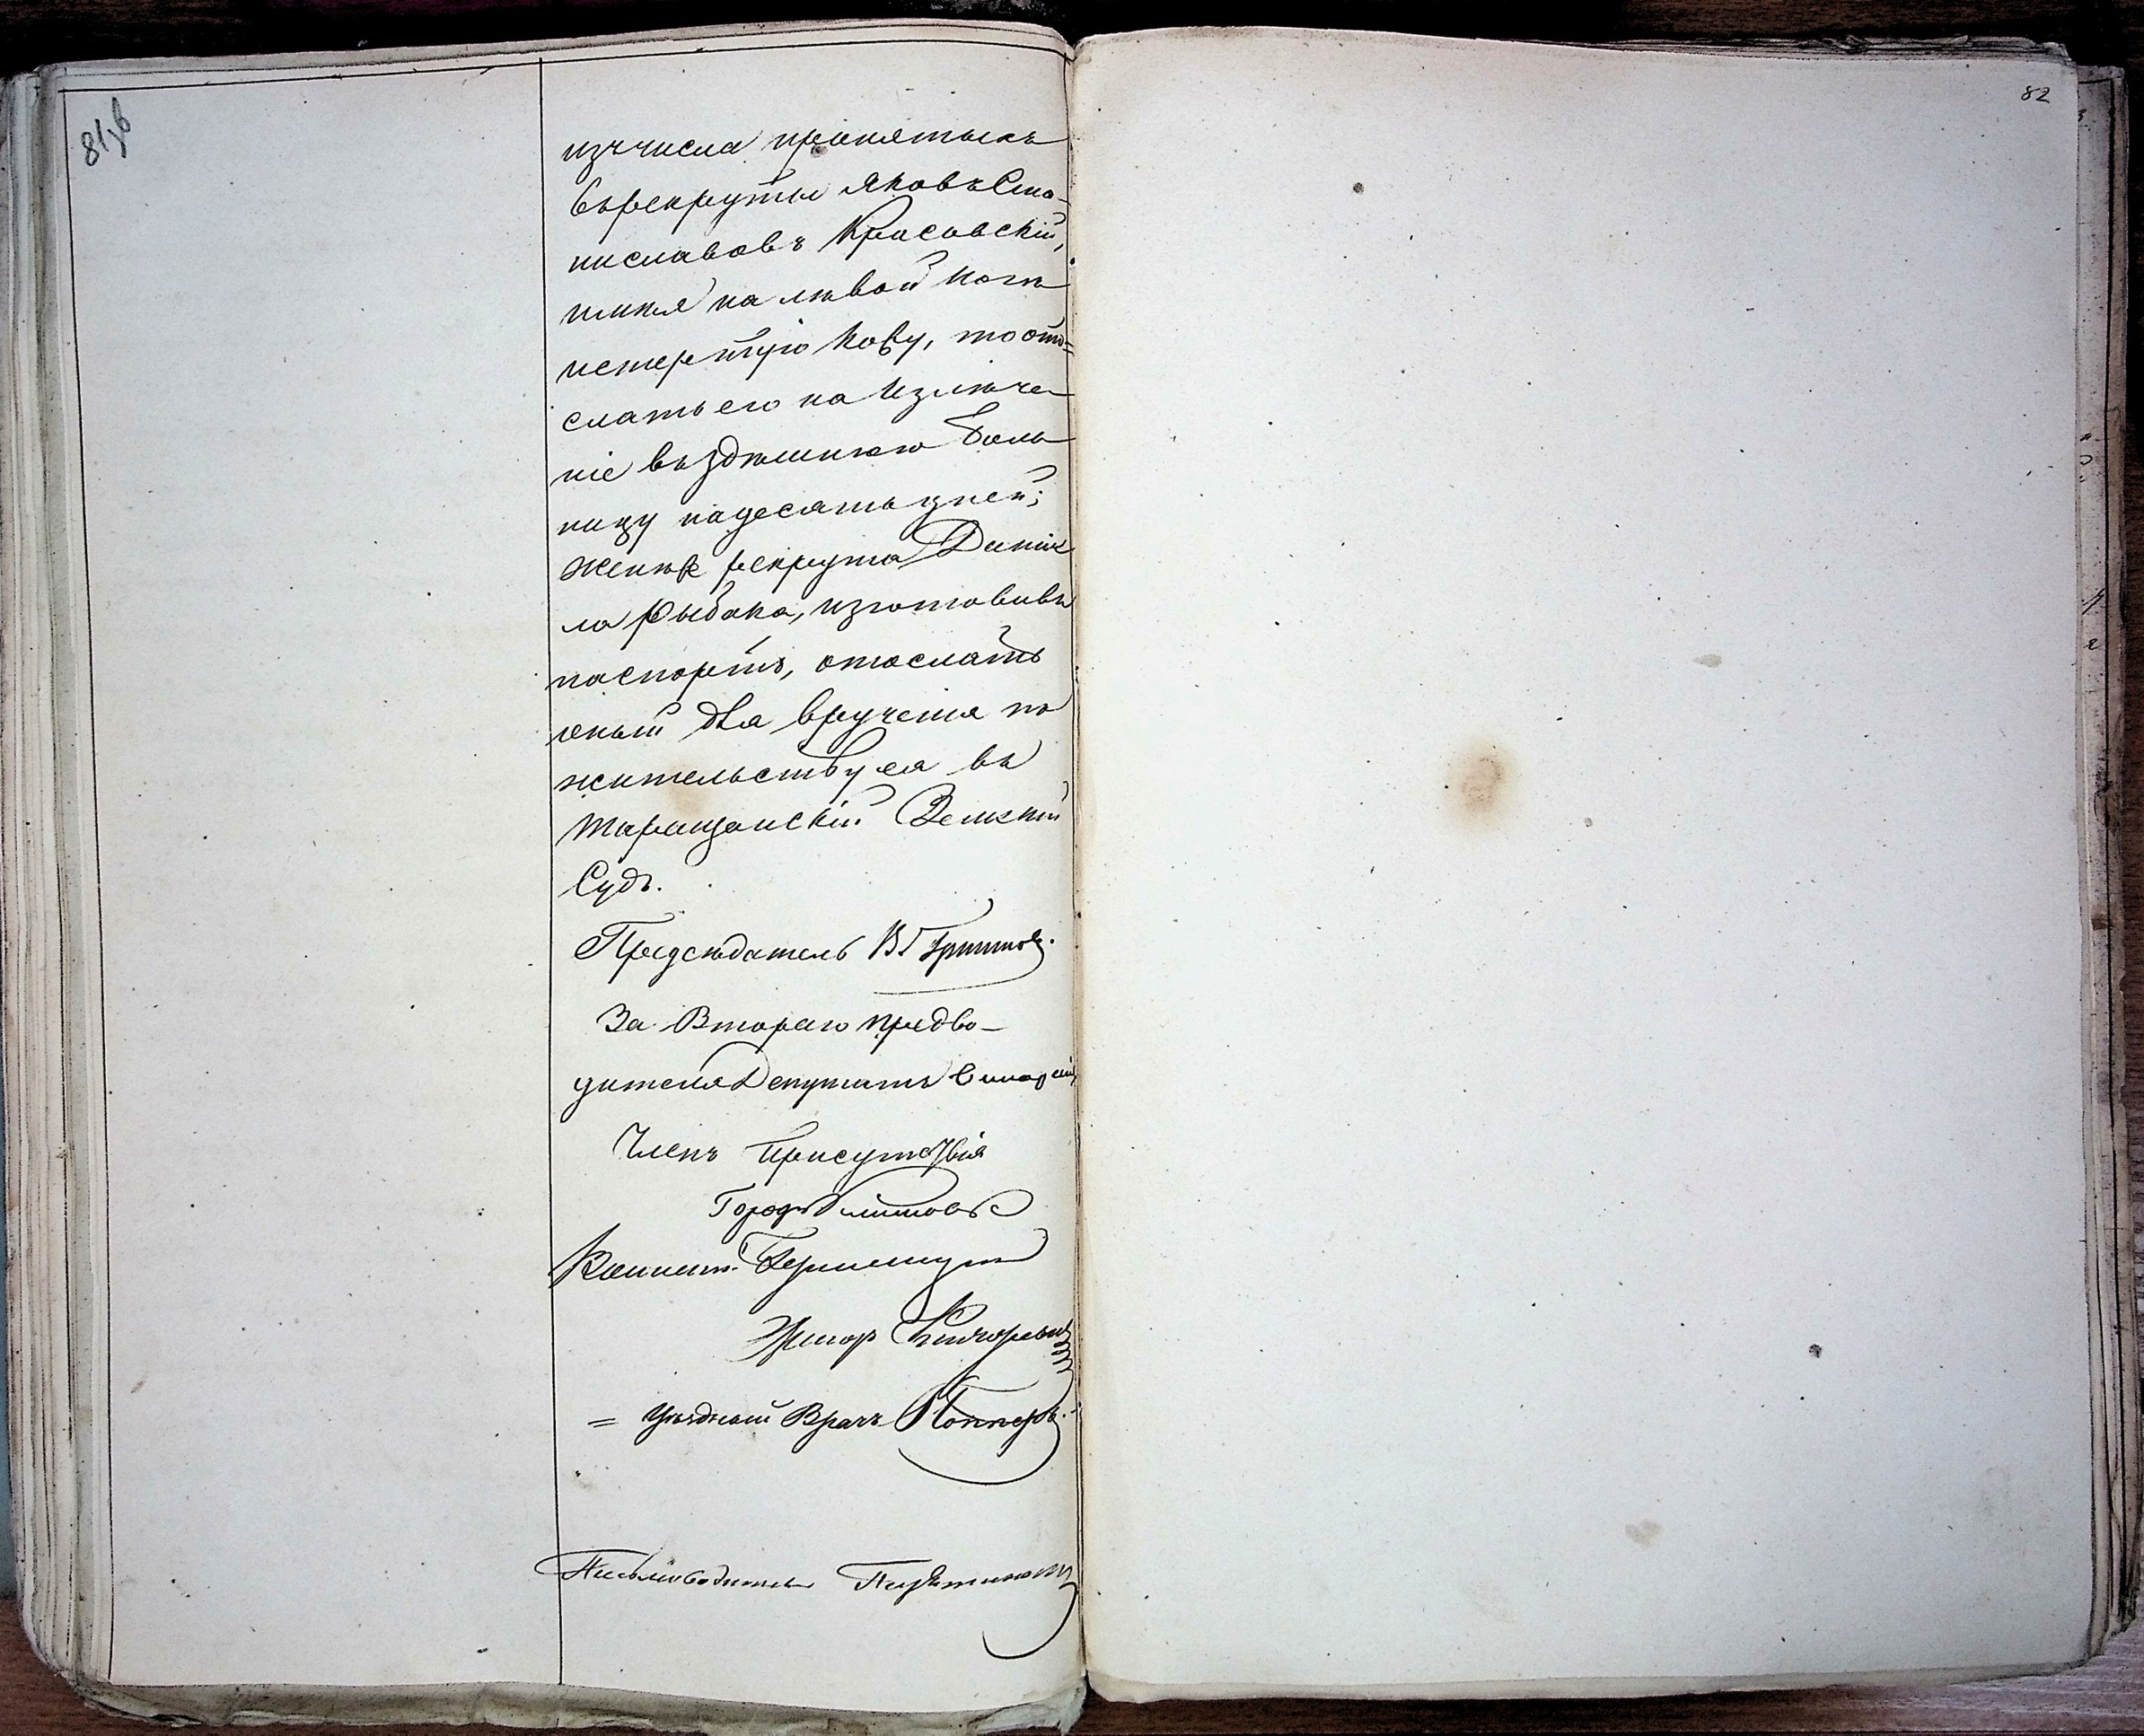 81зв
82
изъ числа принятыхъ
въ рекруты Яковъ Ста-
ниславовъ Красовскій,
имѣя на лѣвой ногѣ
истертую кожу, то ото=
слать его на излѣче
ніе въ здѣшнюю боль
ницу на десять дней;
Женѣ рекрута Даніи
ла Рыбака, изготовивъ
паспортъ, отослать
оный для врученія по
жительству ея въ
Таращанскій Земскій
Судъ.
Предсѣдатель
За Втораго предво-
дителя Депутатъ
Членъ Присутствія
Уѣздный Врачъ
Письмоводитель